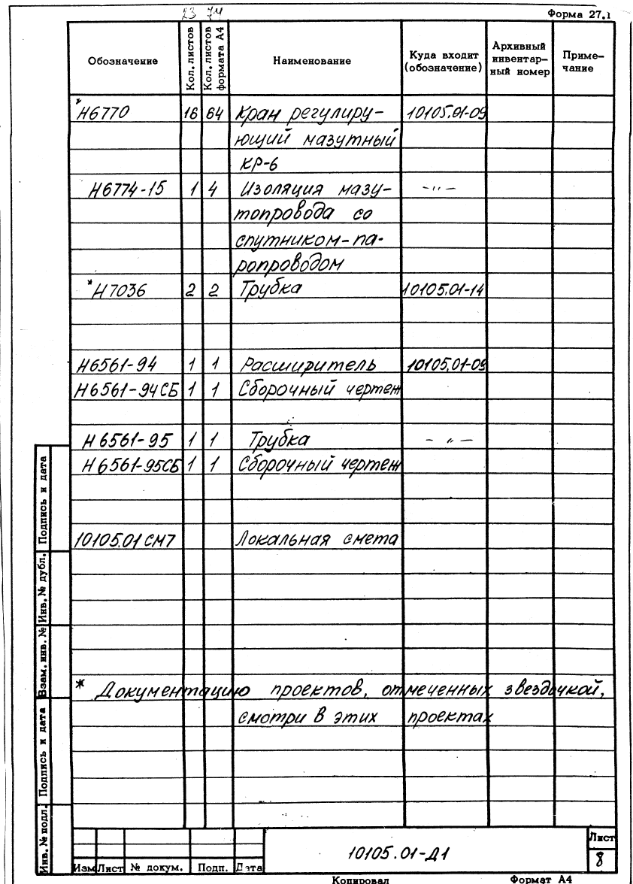 23 74
Форма 27.1
Обозначение
Кол. листов
Кол. листов формата А4
Наименование
Куда входит (обозначение)
Архивный инвентар- ный номер
Приме- чание
*Н6770 16 64 Кран регулиру- 10105.01-09
ющий мазутный
КР-6
Н6774-15 1 4 Изоляция мазу- -"-
топровода со
спутником-па-
ропроводом
*Н7036 2 2 Трубка 10105.01-14
Н6561-94 1 1 Расширитель 10105.01-09
Н6561-94СБ 1 1 Сборочный чертеж
Н6561-95 1 1 Трубка -"-
Н6561-95СБ 1 1 Сборочный чертеж
10105.01 СМ7 Локальная смета
* Документацию проектов, отмеченных звездочкой,
смотри в этих проектах
Инв. № подл. Подпись и дата Взам. инв. № Инв. № дубл. Подпись и дата
10105.01-Д1
Лист
8
Изм Лист № докум. Подп. Дата
Копировал Формат А4